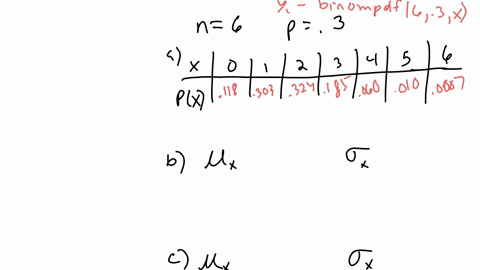 y₁ - binompdf(6,.3,x)
n=6 p=.3
a) x 0 1 2 3 4 5 6
P(x) .118 .303 .324 .185 .060 .010 .0007
b) μₓ σₓ
c) μₓ σₓ